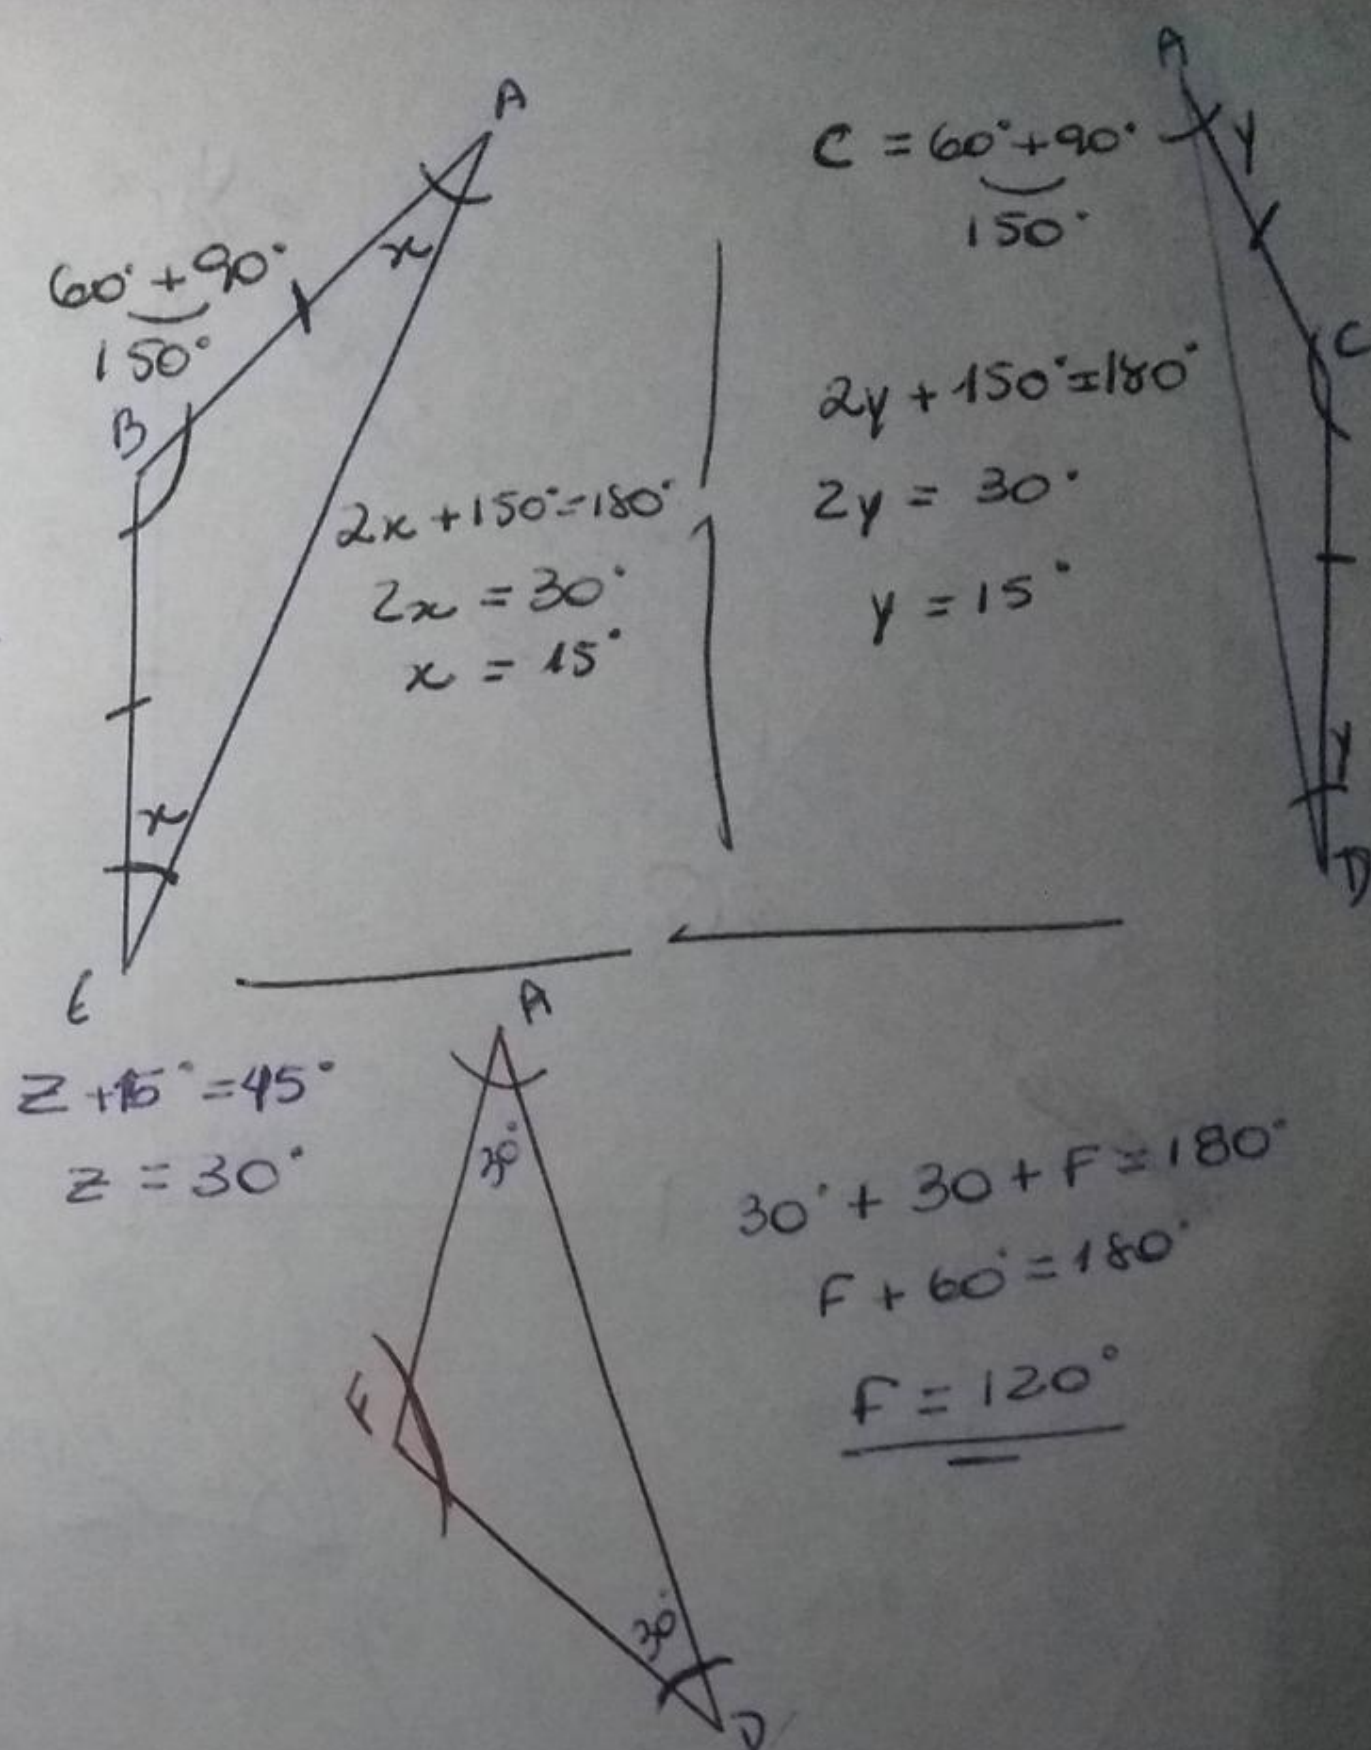 A
60° + 90°
150°
x
B
2x + 150° = 180°
2x = 30°
x = 15°
x
E
A
C = 60° + 90°
150°
y
C
2y + 150° = 180°
2y = 30°
y = 15°
y
D
Z + 15° = 45°
z = 30°
A
30°
F
30°
D
30° + 30 + F = 180°
F + 60° = 180°
F = 120°